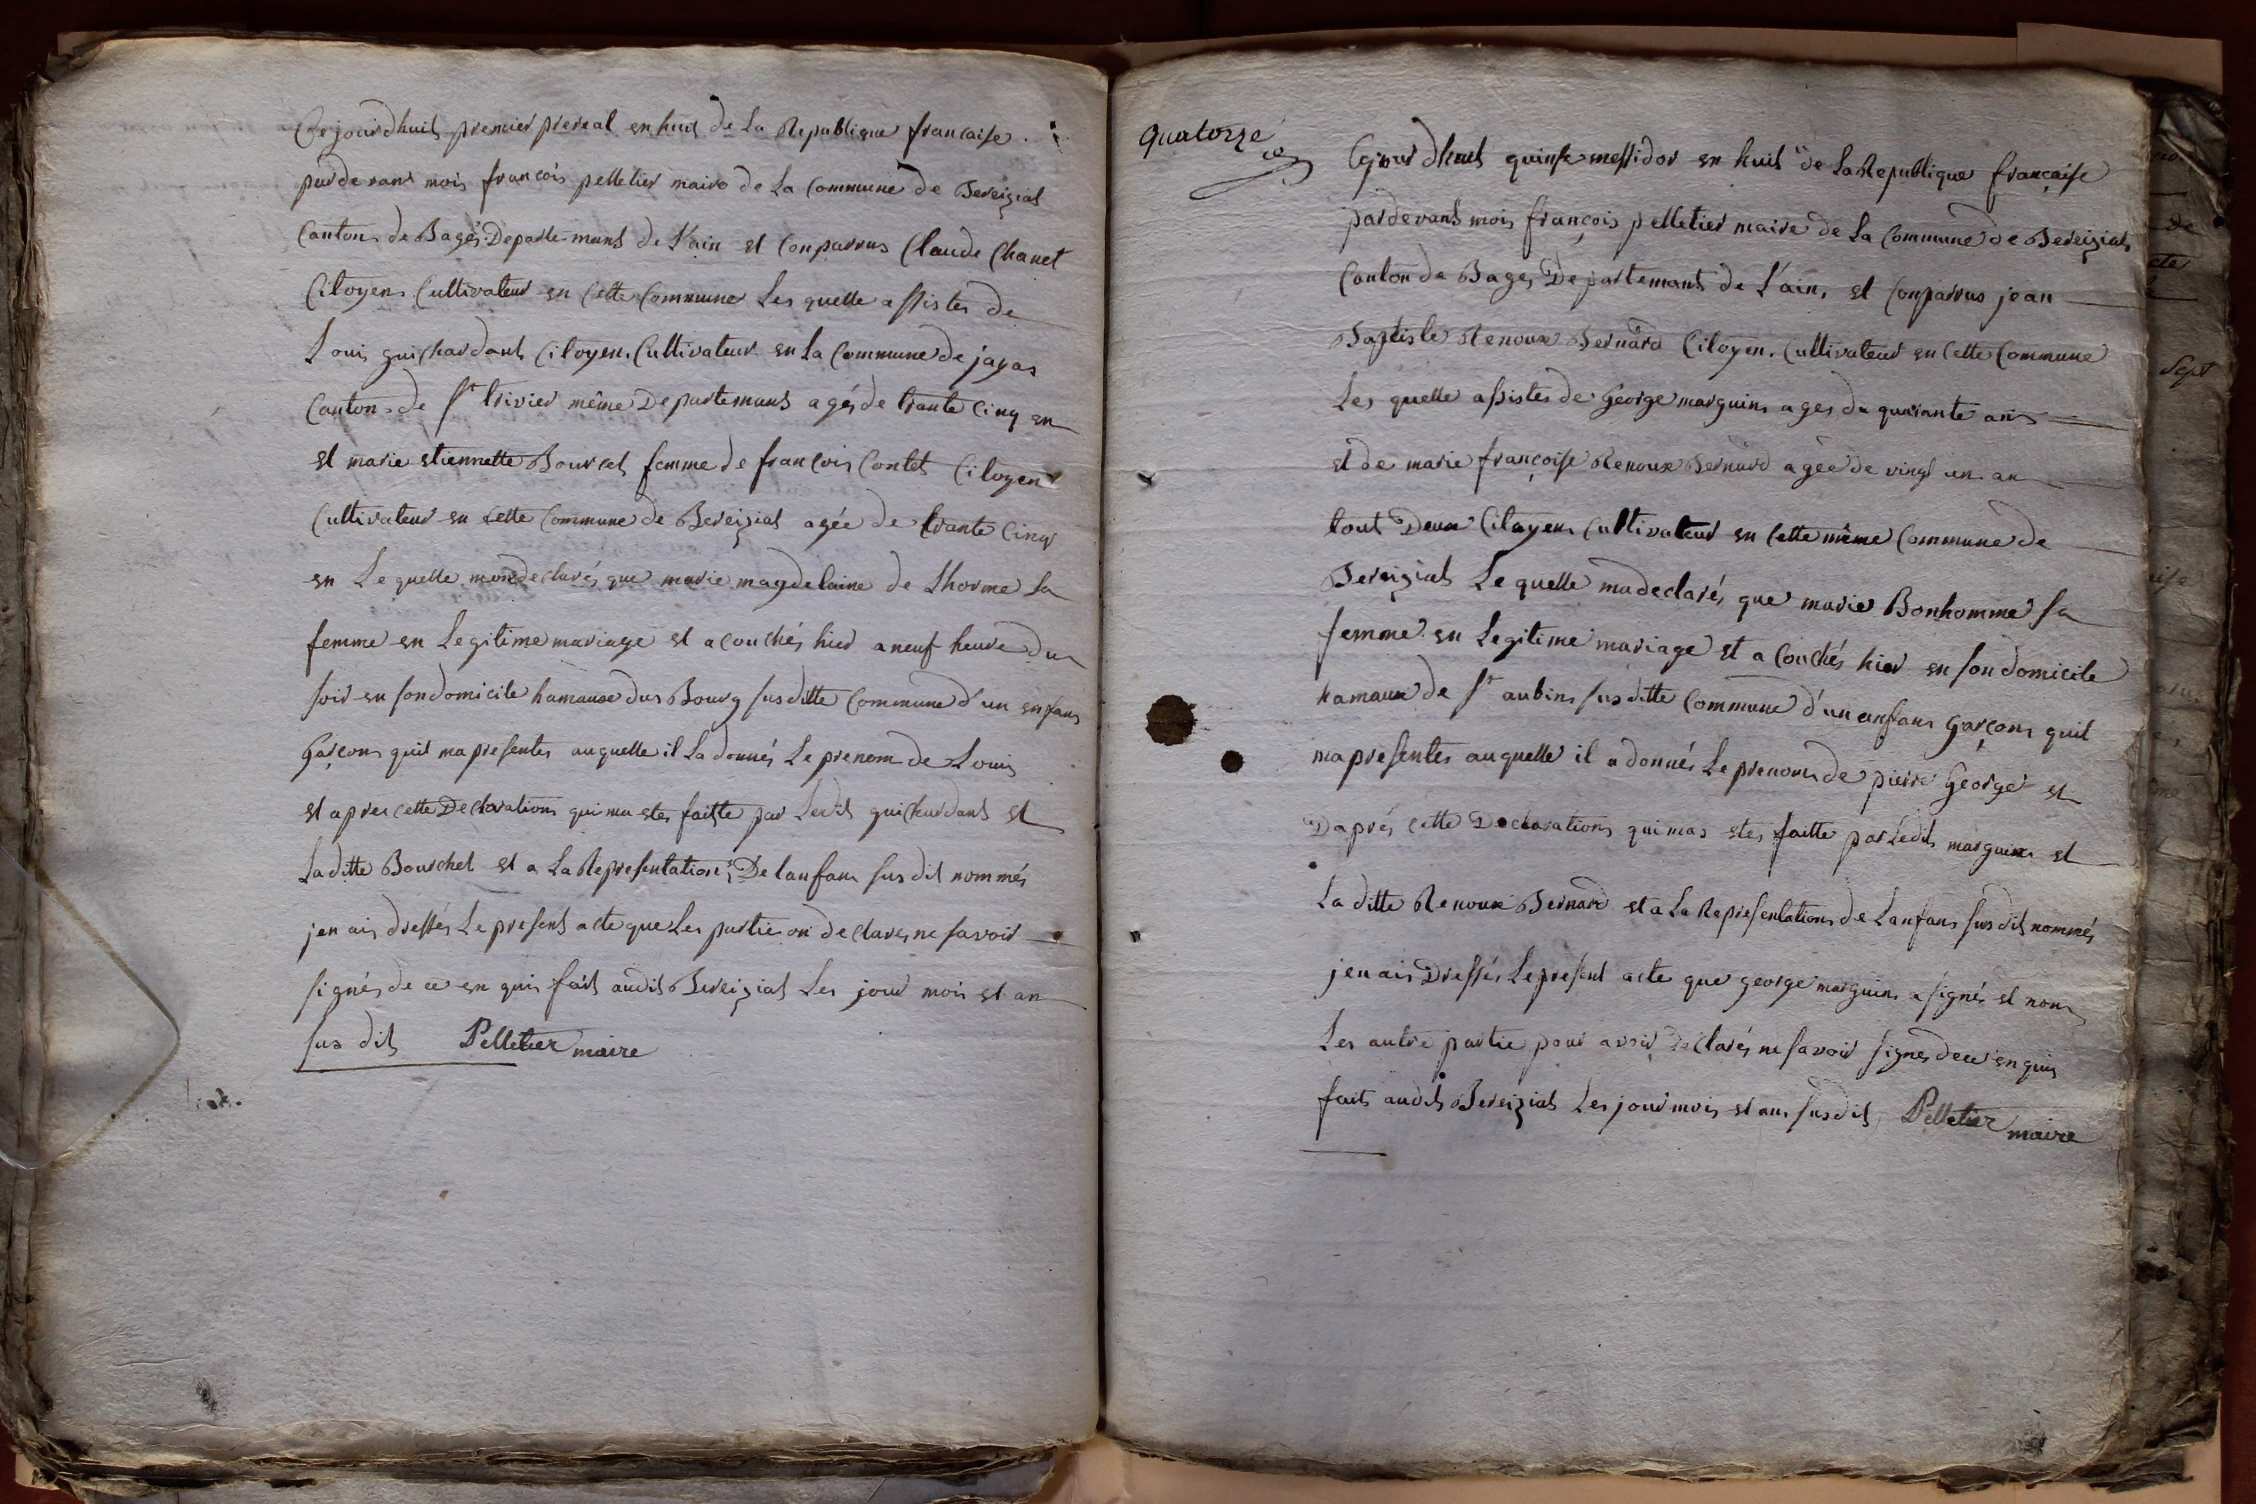 Cejourdhuit premier prereal en huit de La Republique francaise
pardevant mois francois pelletier maire de La Commune de Bereiziat
Canton de Bagé Departe-mant de L'ain et Conparrus Claude Chanet
Citoyen Cultivateur en Cette Commune Les quelle assistes de
Louis guichardant Citoyen Cultivateur en La Commune de jayas
Canton de St trivier même Departemant agés de trante Cinq an
et marie etiennette Bourcet femme de francois Contet Citoyen
Cultivateur en Cette Commune de Bereiziat agée de trante Cinq
an Le quelle mon declarés que marie magdelaine de Lhorme sa
femme en Legitime mariage et acouchés hier a neuf heure du
soir en son domicile hamaux dus Bourg susditte Commune d'un enfans
Garçons quil ma presentes auquelle il La donnés Le prenom de Louis
et apres cette Declaration qui ma etes faitte par Ledit guichardant et
La ditte Bourchet et a La Representation De lanfans susdit nommés
jen ais dressés Le present acte que Les partie on declares ne savoir
signés de ce en quis fait audit Bereiziat Les jour mois et an
sus dit Pelletier maire
quatorze
Cejour dhuit quinse messidor en huit de La Republique francaise
pardevant mois françois pelletier maire de La Commune de Bereiziat
Canton de Bages Departemant de L'ain, et Conparrus jean
Baptiste Renoux Bernard Citoyen Cultivateur en Cette Commune
Les quelle assistes de George marguin ages de quarante ans
et de marie françoise Renoux Bernard agée de vingt un an
tout Deux Citoyen Cultivateur en Cette même Commune de
Bereiziat Le quelle ma declarés que marie Bonhomme sa
femme en Legitime mariage et a Couchés hier en son domicile
hamaux de St aubin susditte Commune d'un enfans Garçons quil
ma presentes auquelle il a donnés Le prenom de pierre George et
Daprés cette Declaration qui mas etes faitte par Ledit marguin et
La ditte Renoux Bernard et a La Representation de Lanfans susdit nommés
jen ais Dressés Le present acte que george marguin a signés et non
Les autre partie pour avoir declarés ne savoir signes de ce en quis
fait audit Bereiziat Les jour mois et an susdit Pelletier maire
Sept